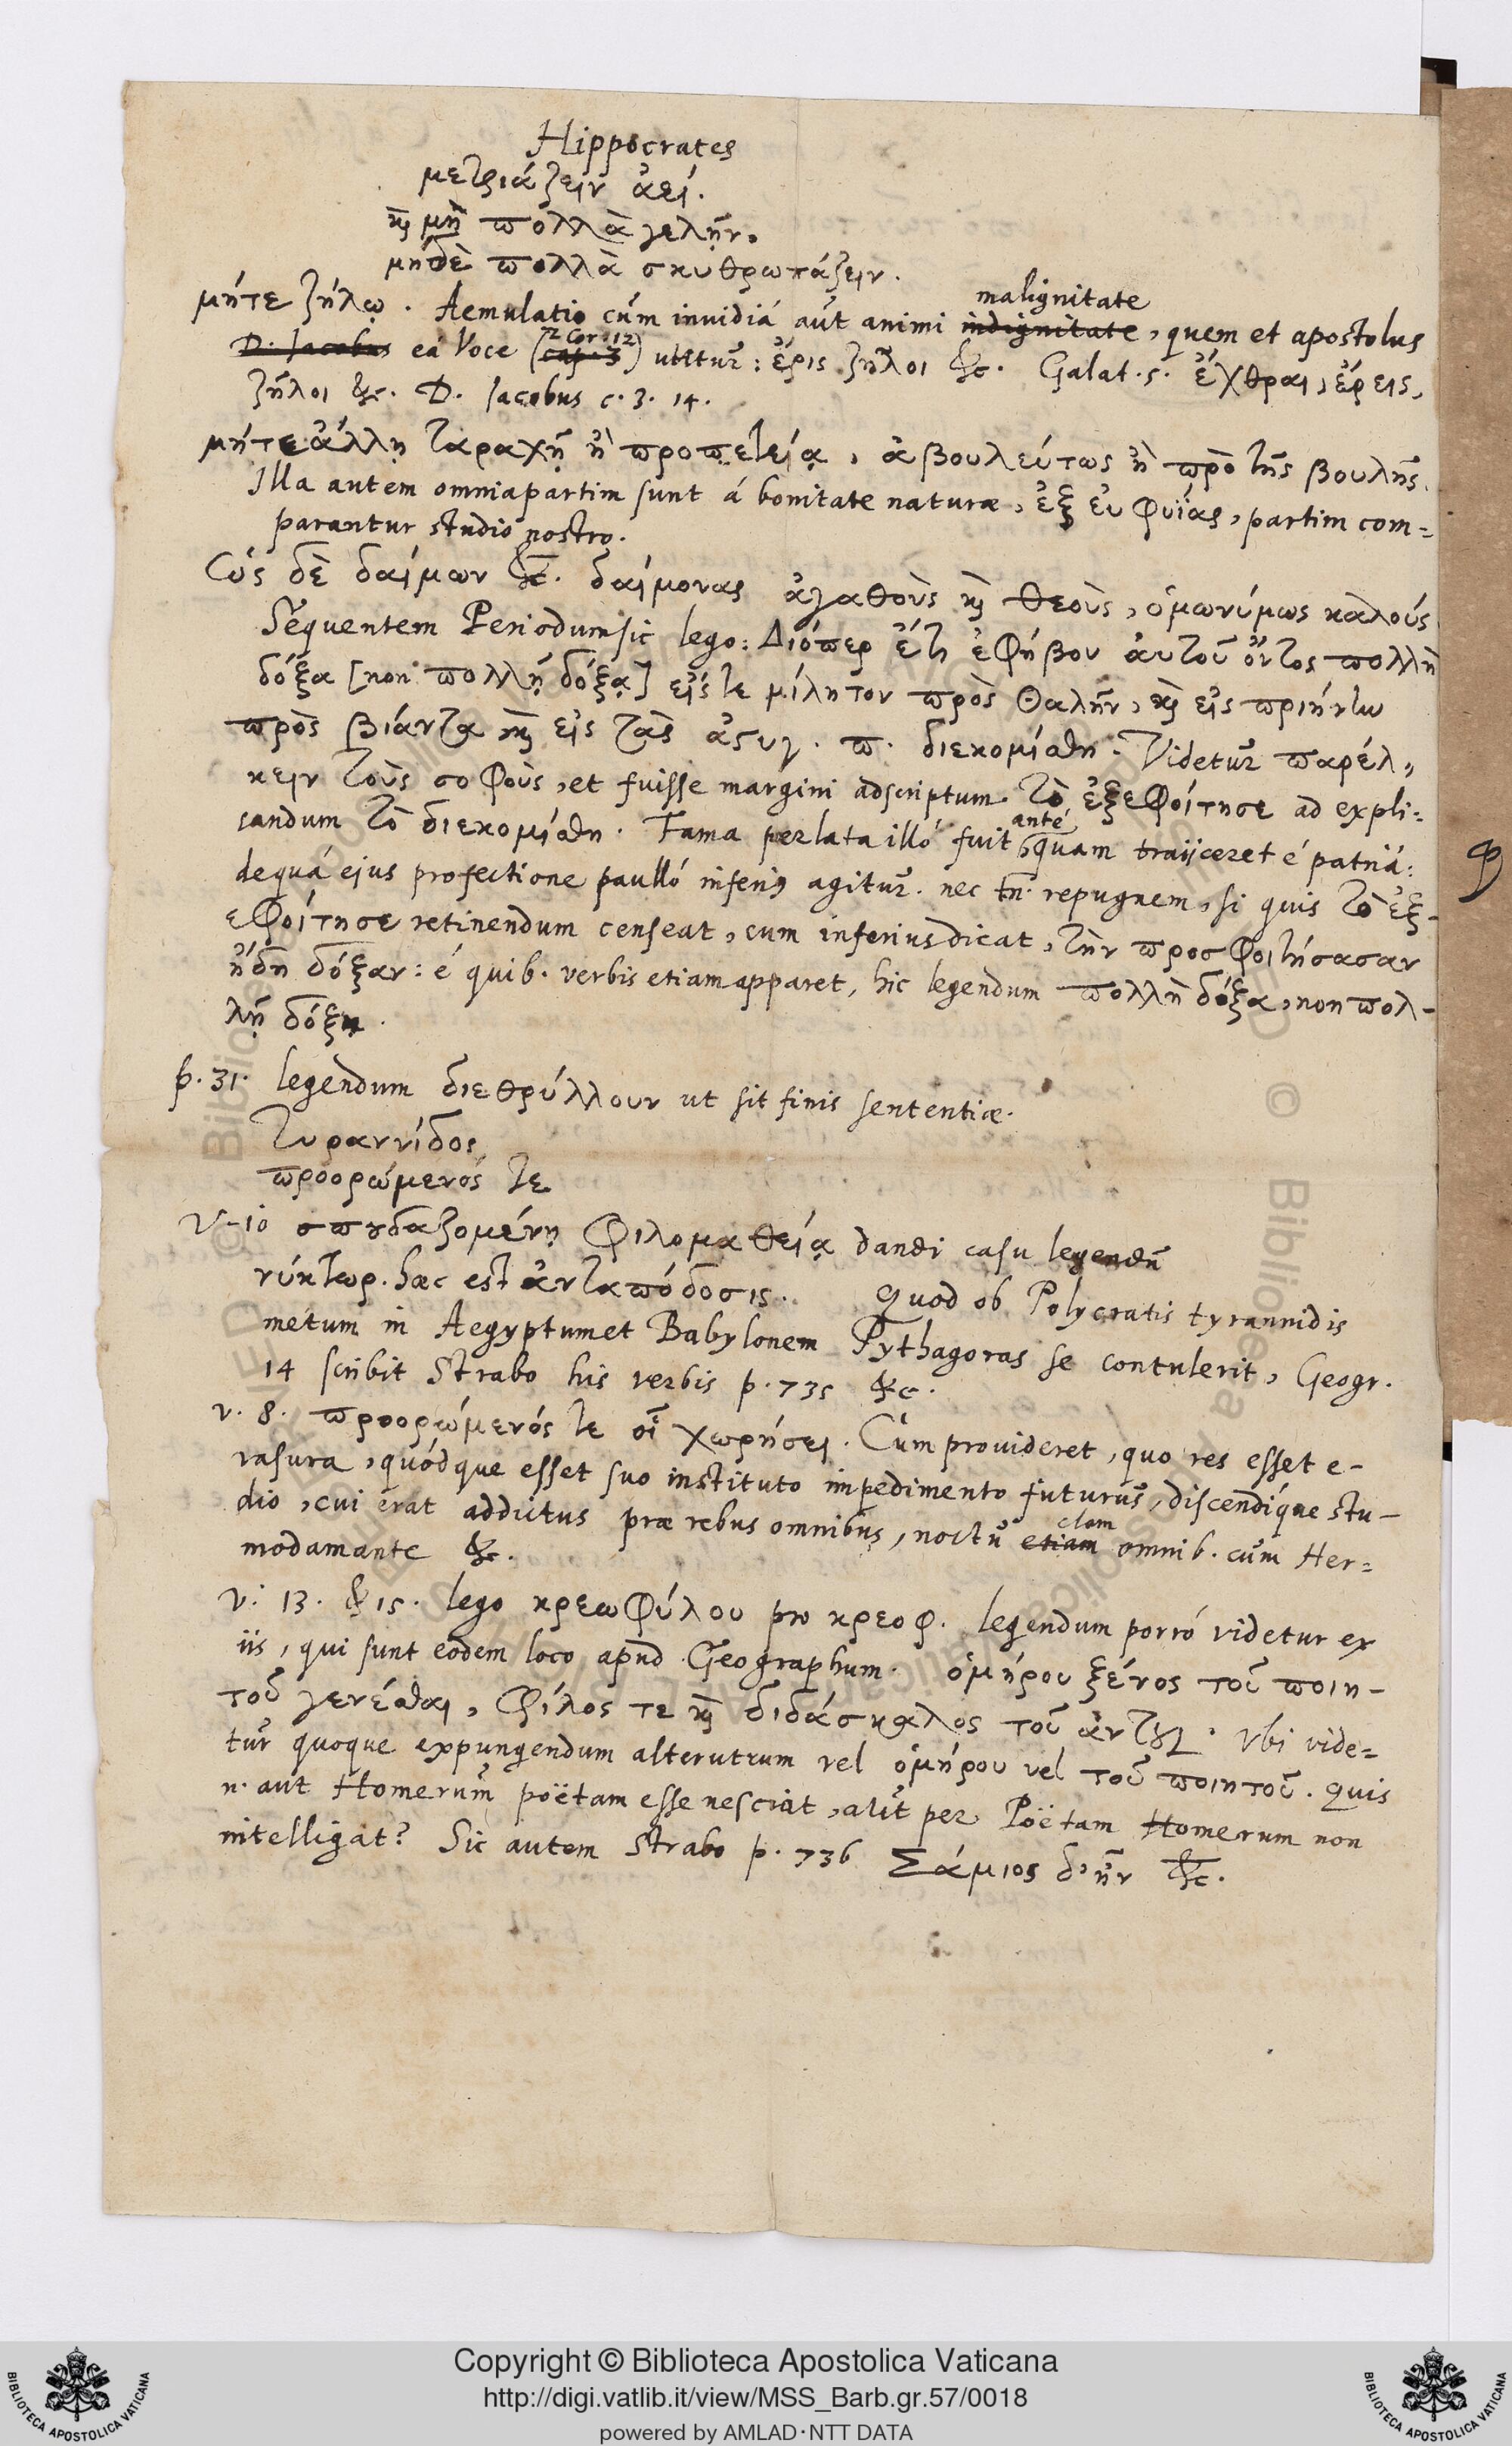 Hippocrates
μετριάζειν ἀεί.
καὶ μὴ πολλὰ γελῆν.
μηδὲ πολλὰ σκυθρωπάζειν.
malignitate
μήτε ζήλῳ. Aemulatio cùm invidiá aut animi indignitate, quem et apostolus
2 Cor. 12
D. Jacobus eá Voce (cap. 3) utitur: ἔρις ζῆλοι &c. Galat. 5. ἔχθραι, ἔρεις,
ζῆλοι &c. D. Jacobus c. 3. 14.
μήτε ἄλλῃ ταραχῇ ἢ προπετείᾳ, ἀβουλεύτως ἢ πρὸ τῆς βουλῆς.
Illa autem omnia partim sunt á bonitate naturæ, ἐξ εὐφυΐας, partim com=
parantur studio nostro.
Ὡς δὲ δαίμων &c. δαίμονας ἀγαθοὺς καὶ θεοὺς, ὁμωνύμως καλούς
Sequentem Periodum sic lego: Διόπερ ἔτι ἐφήβου ἀυτοῦ ὄντος πολλὴ
δόξα [non πολλῇ δόξᾳ] εἴς τε μίλητον πρὸς Θαλῆν, καὶ εἰς πριήνην
πρὸς βίαντα καὶ εἰς τὰς ἀστυγ. π. διεκομίσθη. Videtur παρέλ„
κειν τοὺς σοφοὺς, et fuisse margini adscriptum τὸ ἐξεφοίτησε ad expli=
anté
candum τὸ διεκομίσθη. Fama perlata illó fuit quam traijceret é patriá:
de quá ejus profectione paulló inferiꝰ agitur. nec tn̄. repugnem, si quis τὸ ἐξ-
εφοίτησε retinendum censeat, cum inferius dicat, τὴν προσφοιτήσασαν
ἤδη δόξαν: é quib. verbis etiam apparet, hic legendum πολλὴ δόξα, non πολ-
λῇ δόξῃ.
p. 31. legendum διεθρύλλουν ut sit finis sententiæ.
τυραννίδος
προορώμενός τε
v. 10 σπουδαζομένῃ φιλομαθείᾳ dandi casu legendū
νύκτωρ. hæc est ἀνταπόδοσις. Quod ob Polycratis tyrannidis
metum in Aegyptum et Babylonem Pythagoras se contulerit, Geogr.
14 scribit Strabo his verbis p. 735 &c.
v. 8. προορώμενός τε οἷ χωρήσει. Cùm provideret, quo res esset e-
vasura, quódque esset suo instituto impedimento futurus, discendíque stu-
dio, cui erat addictus præ rebus omnibus, noctu etiam omnib. cùm Her=
clam
modamante &c.
v. 13. & 15. lego κρεωφύλου pro κρεοφ. legendum porró videtur ex
iis, qui sunt eodem loco apud Geographum. ὁμήρου ξένος τοῦ ποιη-
τοῦ γενέσθαι, φίλος τε καὶ διδάσκαλος τοῦ Ubi vide=
tur quoque expungendum alterutrum vel ὁμήρου vel τοῦ ποιητοῦ. Quis
n. aut Homerum poëtam esse nesciat, aut per Poëtam Homerum non
intelligat? Sic autem Strabo p. 736 Σάμιος δ' ἦν &c.
Copyright © Biblioteca Apostolica Vaticana
http://digi.vatlib.it/view/MSS_Barb.gr.57/0018
powered by AMLAD·NTT DATA
BIBLIOTECA APOSTOLICA VATICANA
BIBLIOTECA APOSTOLICA VATICANA